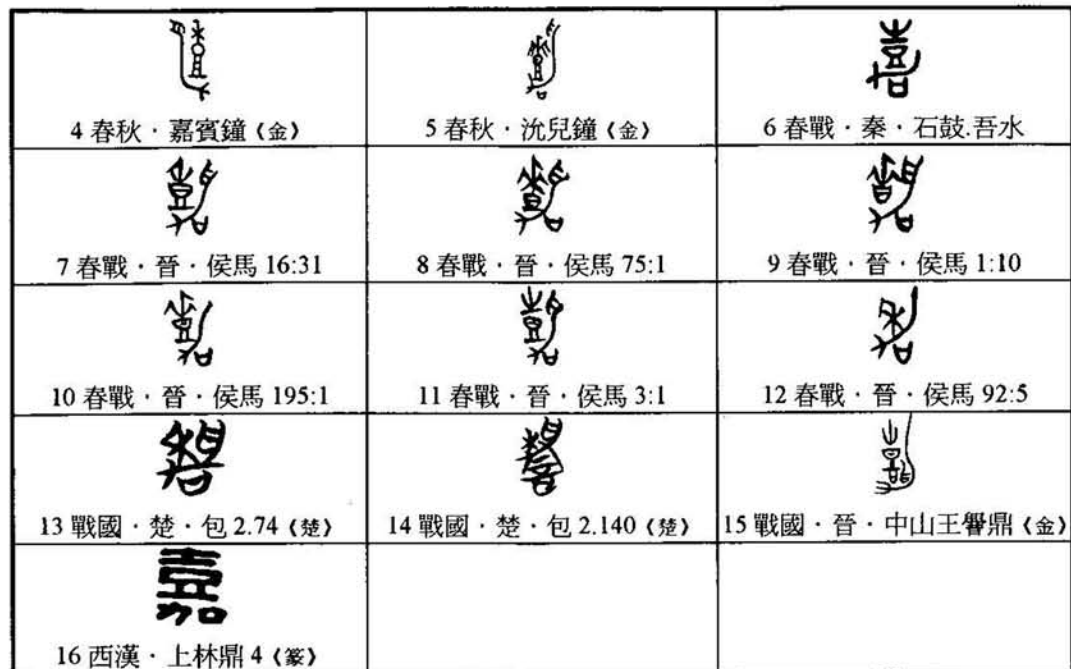 4 春秋．嘉賓鐘《金》
5 春秋．沇兒鐘《金》
6 春戰．秦．石鼓.吾水
7 春戰．晉．侯馬 16:31
8 春戰．晉．侯馬 75:1
9 春戰．晉．侯馬 1:10
10 春戰．晉．侯馬 195:1
11 春戰．晉．侯馬 3:1
12 春戰．晉．侯馬 92:5
13 戰國．楚．包 2.74《楚》
14 戰國．楚．包 2.140《楚》
15 戰國．晉．中山王譽鼎《金》
嘉
16 西漢．上林鼎 4《篆》